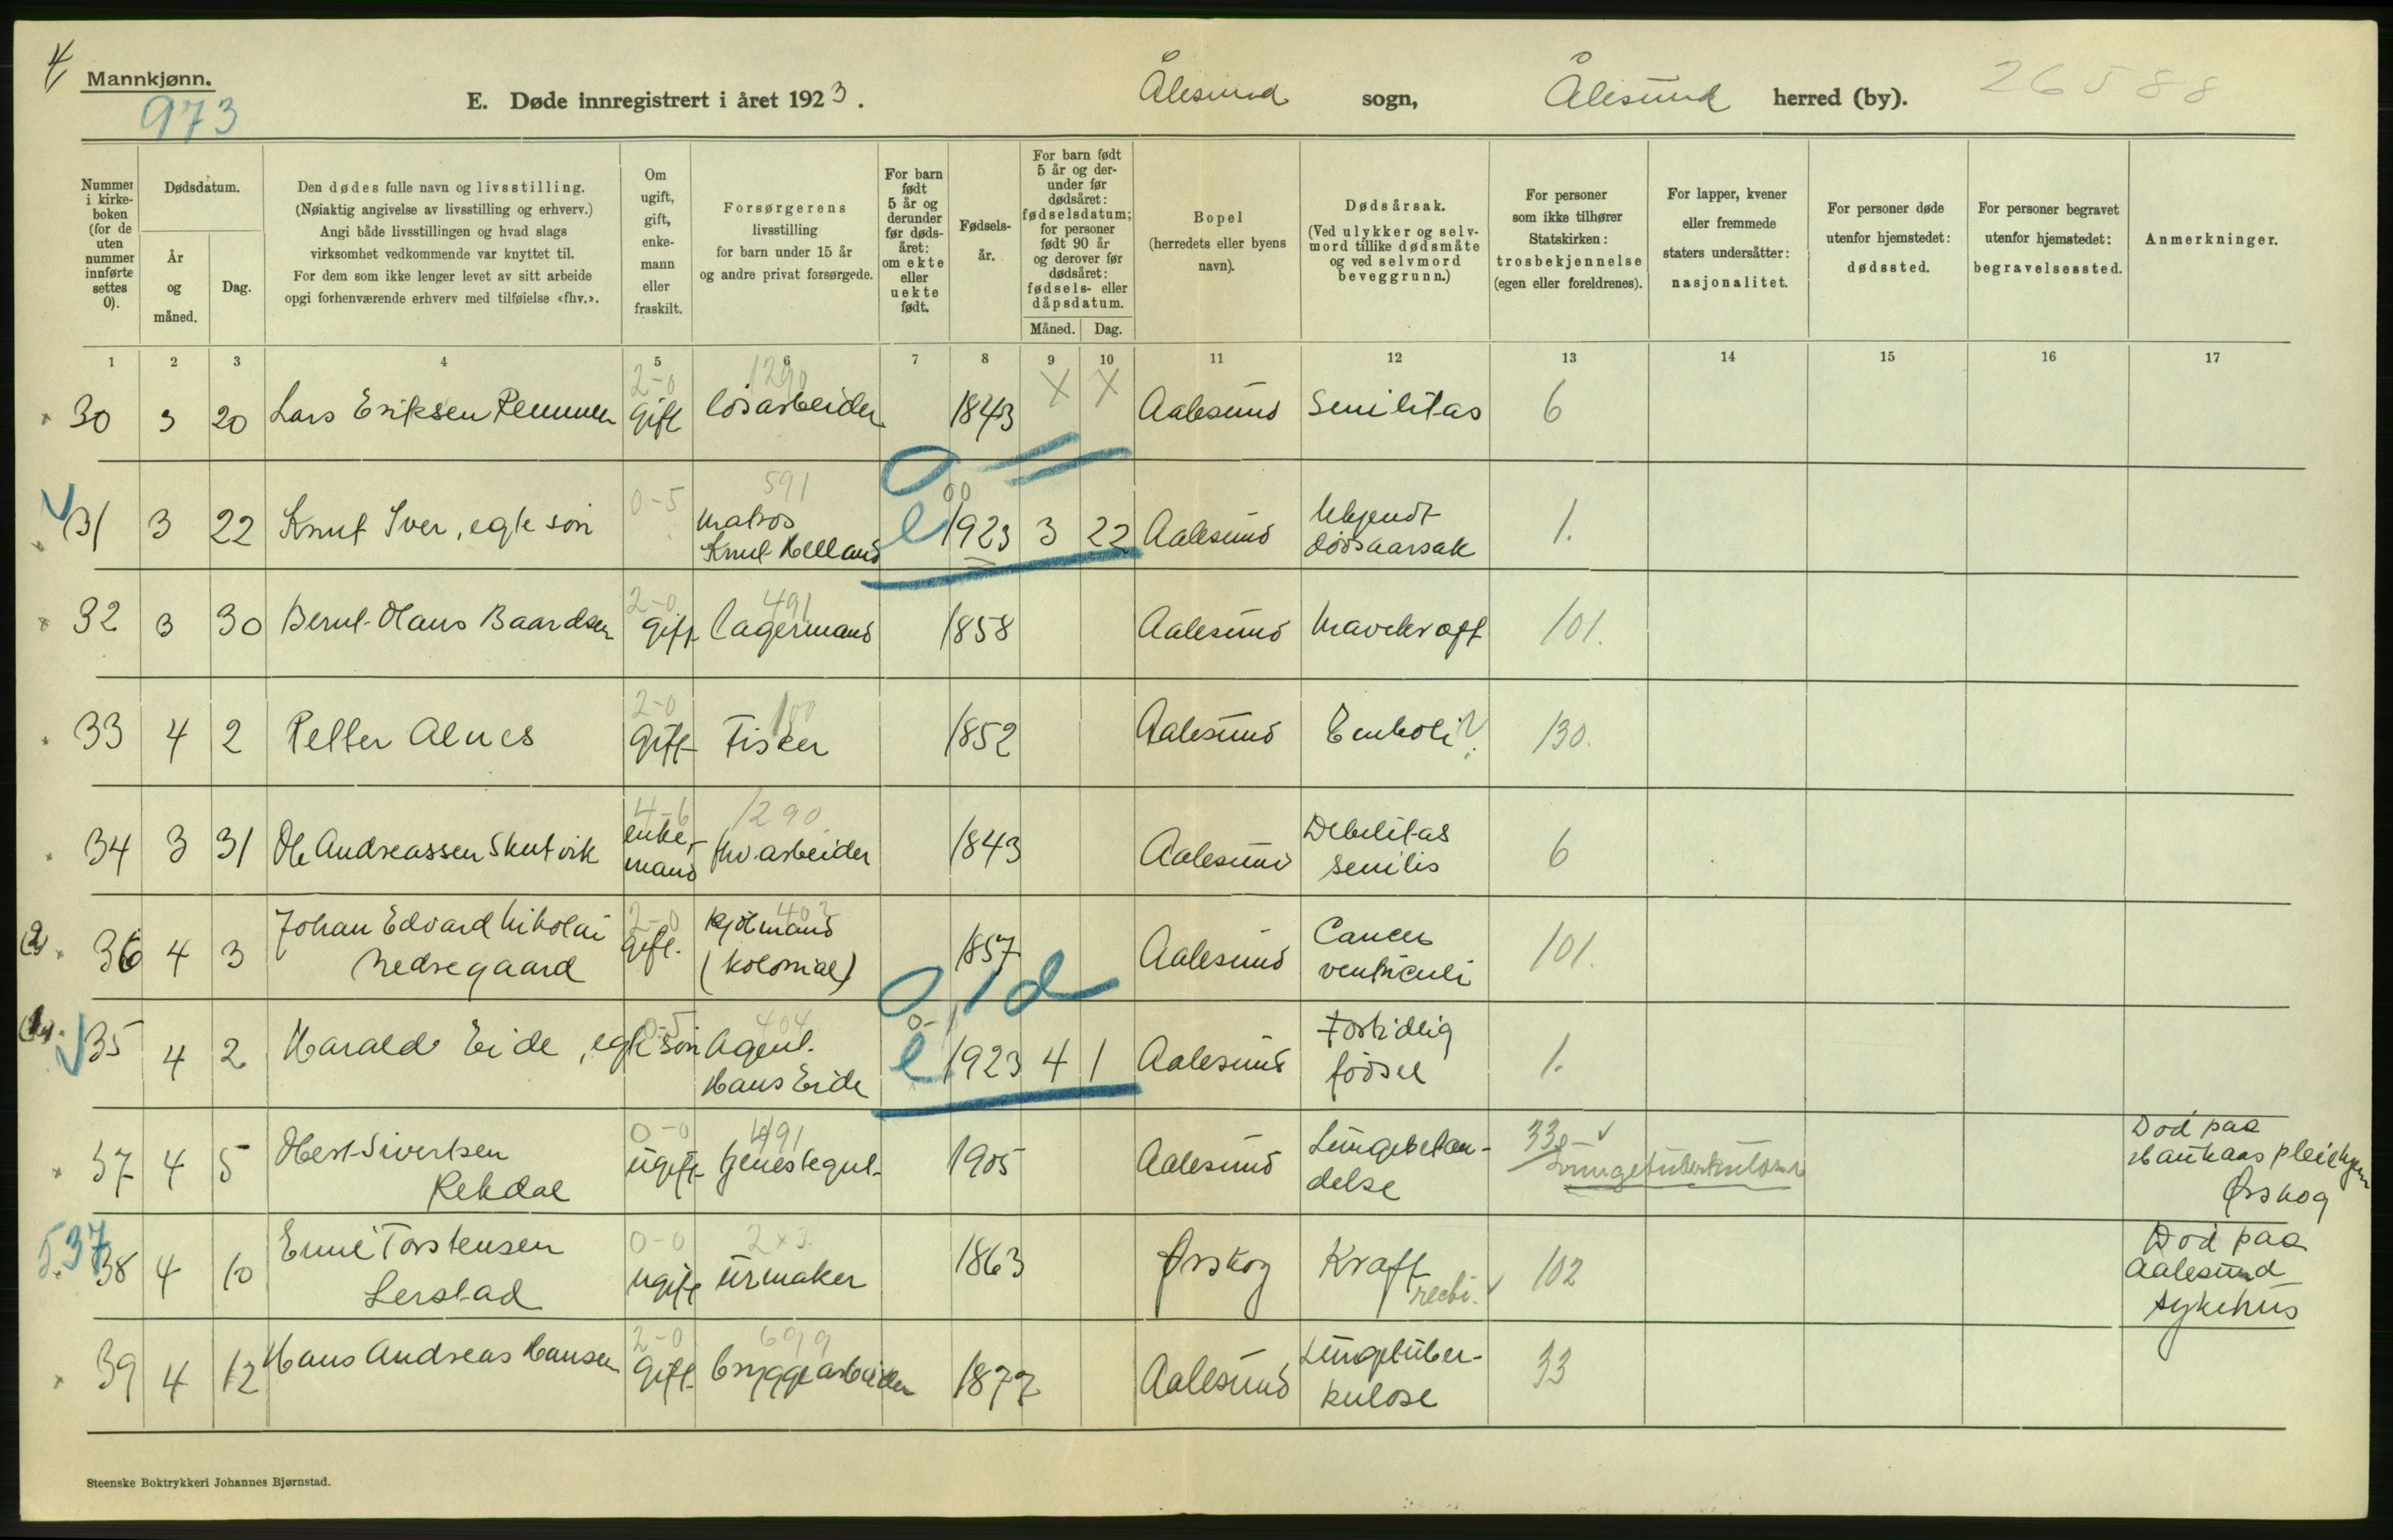 4
Mannkjønn.
973
E. Døde innregistrert i året 1923.
Ålesund sogn, Ålesund herred (by). 26588
Nummer i kirkeboken (for de uten nummer innførte settes 0).
Dødsdatum.
År og måned.
Dag.
Den dødes fulle navn og livsstilling.
(Nøiaktig angivelse av livsstilling og erhverv.)
Angi både livsstillingen og hvad slags
virksomhet vedkommende var knyttet til.
For dem som ikke lenger levet av sitt arbeide
opgi forhenværende erhverv med tilføielse «fhv.».
Om ugift, gift, enkemann eller fraskilt.
Forsørgerens
livsstilling
for barn under 15 år
og andre privat forsørgede.
For barn født 5 år og derunder før dødsåret: om ekte eller uekte født.
Fødselsår.
For barn født 5 år og derunder før dødsåret: fødselsdatum; for personer født 90 år og derover før dødsåret: fødsels- eller dåpsdatum.
Måned. Dag.
Bopel
(herredets eller byens
navn).
Dødsårsak.
(Ved ulykker og selvmord tillike dødsmåte og ved selvmord beveggrunn.)
For personer
som ikke tilhører
Statskirken:
trosbekjennelse
(egen eller foreldrenes).
For lapper, kvener
eller fremmede
staters undersåtter:
nasjonalitet.
For personer døde
utenfor hjemstedet:
dødssted.
For personer begravet
utenfor hjemstedet:
begravelsessted.
Anmerkninger.
1 2 3 4 5 6 7 8 9 10 11 12 13 14 15 16 17
2-0 1290 X X
30 3 20 Lars Eriksen Remmen gift løsarbeider 1843 Aalesund Senilitas 6
0-5 591 00
31 3 22 Knut Iver, egte søn Matros e 1923 3 22 Aalesund Ukjendt 1.
Knut Helland dødsaarsak
2-0 491
32 3 30 Bernt Hans Baardsen gift Lagermand 1858 Aalesund Mavekræft 101.
2-0 100
33 4 2 Petter Alnes Gift Fisker 1852 Aalesund Emboli? 130.
4-6 1290
34 3 31 Ole Andreassen Skutvik enke- fhv. arbeider 1843 Aalesund Debilitas 6
mand senilis
2-0 402
(2. 36 4 3 Johan Edvard Nikolai gift. Kjøbmand 1857 Aalesund Cancer 101.
Nedregaard (kolonial) ventriculi
0-5 404 0-1
(1. 35 4 2 Harald Eide, egte søn Agent. e 1923 4 1 Aalesund Fortidlig 1.
Hans Eide fødsel
0-0 491
37 4 5 Obert Sivertsen ugift Tjenestegut 1905 Aalesund Lungebetæn- 33 Død paa
Rekdal delse Lungetuberkulose Haukaas pleiehjem
Ørskog
5.37 0-0
38 4 10 Torstensen ugift urmaker 1863 Ørskog Kraft 102 Død paa
Lerstad recti. Aalesund
sykehus
2-0 699
39 4 12 Hans Andreas Hansen Gift bryggearbeider 1877 Aalesund Lungetuber- 33
kulose
Steenske Boktrykkeri Johannes Bjørnstad.